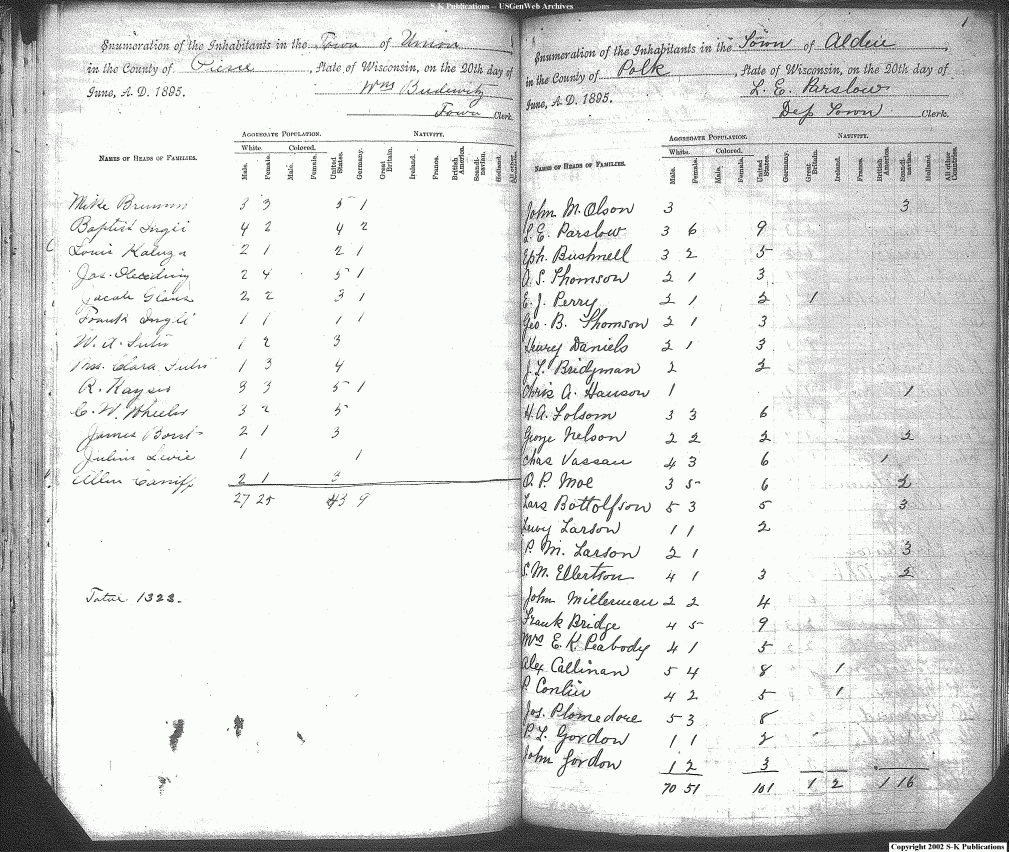 S-K Publications -- USGenWeb Archives
Enumeration of the Inhabitants in the Town of Union
in the County of Pierce, State of Wisconsin, on the 20th day of
June, A. D. 1895. Wm Budewitz
Town Clerk.
AGGREGATE POPULATION. NATIVITY.
NAMES OF HEADS OF FAMILIES. White. Colored.
Male. Female. Male. Female. United States. Germany. Great Britain. Ireland. France. British America. Scandinavian. Holland. All other
Mike 3 3 5 1
Baptist Ingli 4 2 4 2
Louis Kaluza 2 1 2 1
Jas. 2 4 5 1
Jacob 2 2 3 1
Frank Ingli 1 1 1 1
W. A. 1 2 3
Mrs. Clara 1 3 4
R. Kayser 3 3 5 1
C. W. Wheeler 3 2 5
James 2 1 3
Julius 1 1
Allen 2 1 3
27 25 43 9
Total 1323.
1
Enumeration of the Inhabitants in the Town of Alden,
in the County of Polk, State of Wisconsin, on the 20th day of
June, A. D. 1895. L. E. Parslow
Dep Town Clerk.
AGGREGATE POPULATION. NATIVITY.
NAMES OF HEADS OF FAMILIES. White. Colored.
Male. Female. Male. Female. United States. Germany. Great Britain. Ireland. France. British America. Scandinavian. Holland. All other Countries.
John M. Olson 3 3
L. E. Parslow 3 6 9
Eph. Bushnell 3 2 5
A. S. Thomson 2 1 3
E. J. Perry 2 1 2 1
Geo. B. Thomson 2 1 3
Henry Daniels 2 1 3
J. L. Bridgman 2 2
Chris A. Hanson 1 1
H. A. Folsom 3 3 6
George Nelson 2 2 2 2
Chas Vassau 4 3 6 1
O. P. Moe 3 5 6 2
Lars Bottolfson 5 3 5 3
Larson 1 1 2
P. M. Larson 2 1 3
S. M. Ellertson 4 1 3 2
John Millerman 2 2 4
Frank Bridge 4 5 9
Mrs E. K. Peabody 4 1 5
Alex Callinan 5 4 8 1
P. Conlin 4 2 5 1
Jos. Plomedore 5 3 8
P. L. Gordon 1 1 2
John Gordon 1 2 3
70 51 101 1 2 1 16
Copyright 2002 S-K Publications